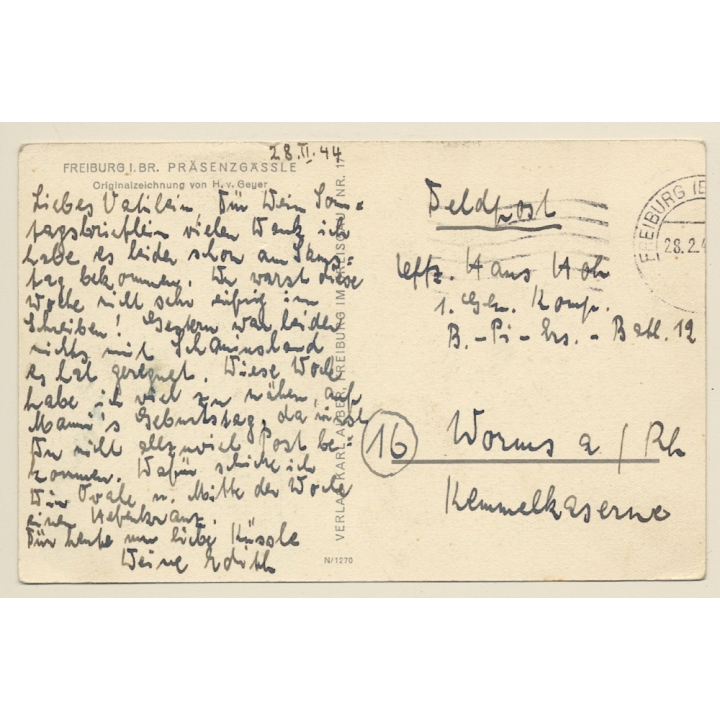 28.II.44
FREIBURG I. BR. PRÄSENZGÄSSLE
Originalzeichnung von H. v. Geyer
Liebes Vatilein Für Dein Son-
tagsbrieflein vielen Dank ich
habe es leider schon am Sams-
tag bekommen. Du warst diese
Woche nicht sehr eifrig im
Schreiben! Gestern war leider
nichts mit Schauinsland
es hat geregnet. Diese Woche
habe ich viel zu nähen, auf
Mammi's Geburtstag, da wirst
Du nicht allzuviel Post be-
kommen. Dafür schicke ich
Dir Ovale u. Mitte der Woche
einen Hefenkranz.
Für heute nur liebe Küssle
Deine Edith
VERLAG KARL ALBER, FREIBURG IM BREISGAU NR. 17
N/1270
Feldpost
FREIBURG (B
28.2.4
Uffz. Hans Hoh
1. Gen. Komp.
B.-Pi-Ers.-Batl. 12
16 Worms a/Rh
Kemmelkaserne